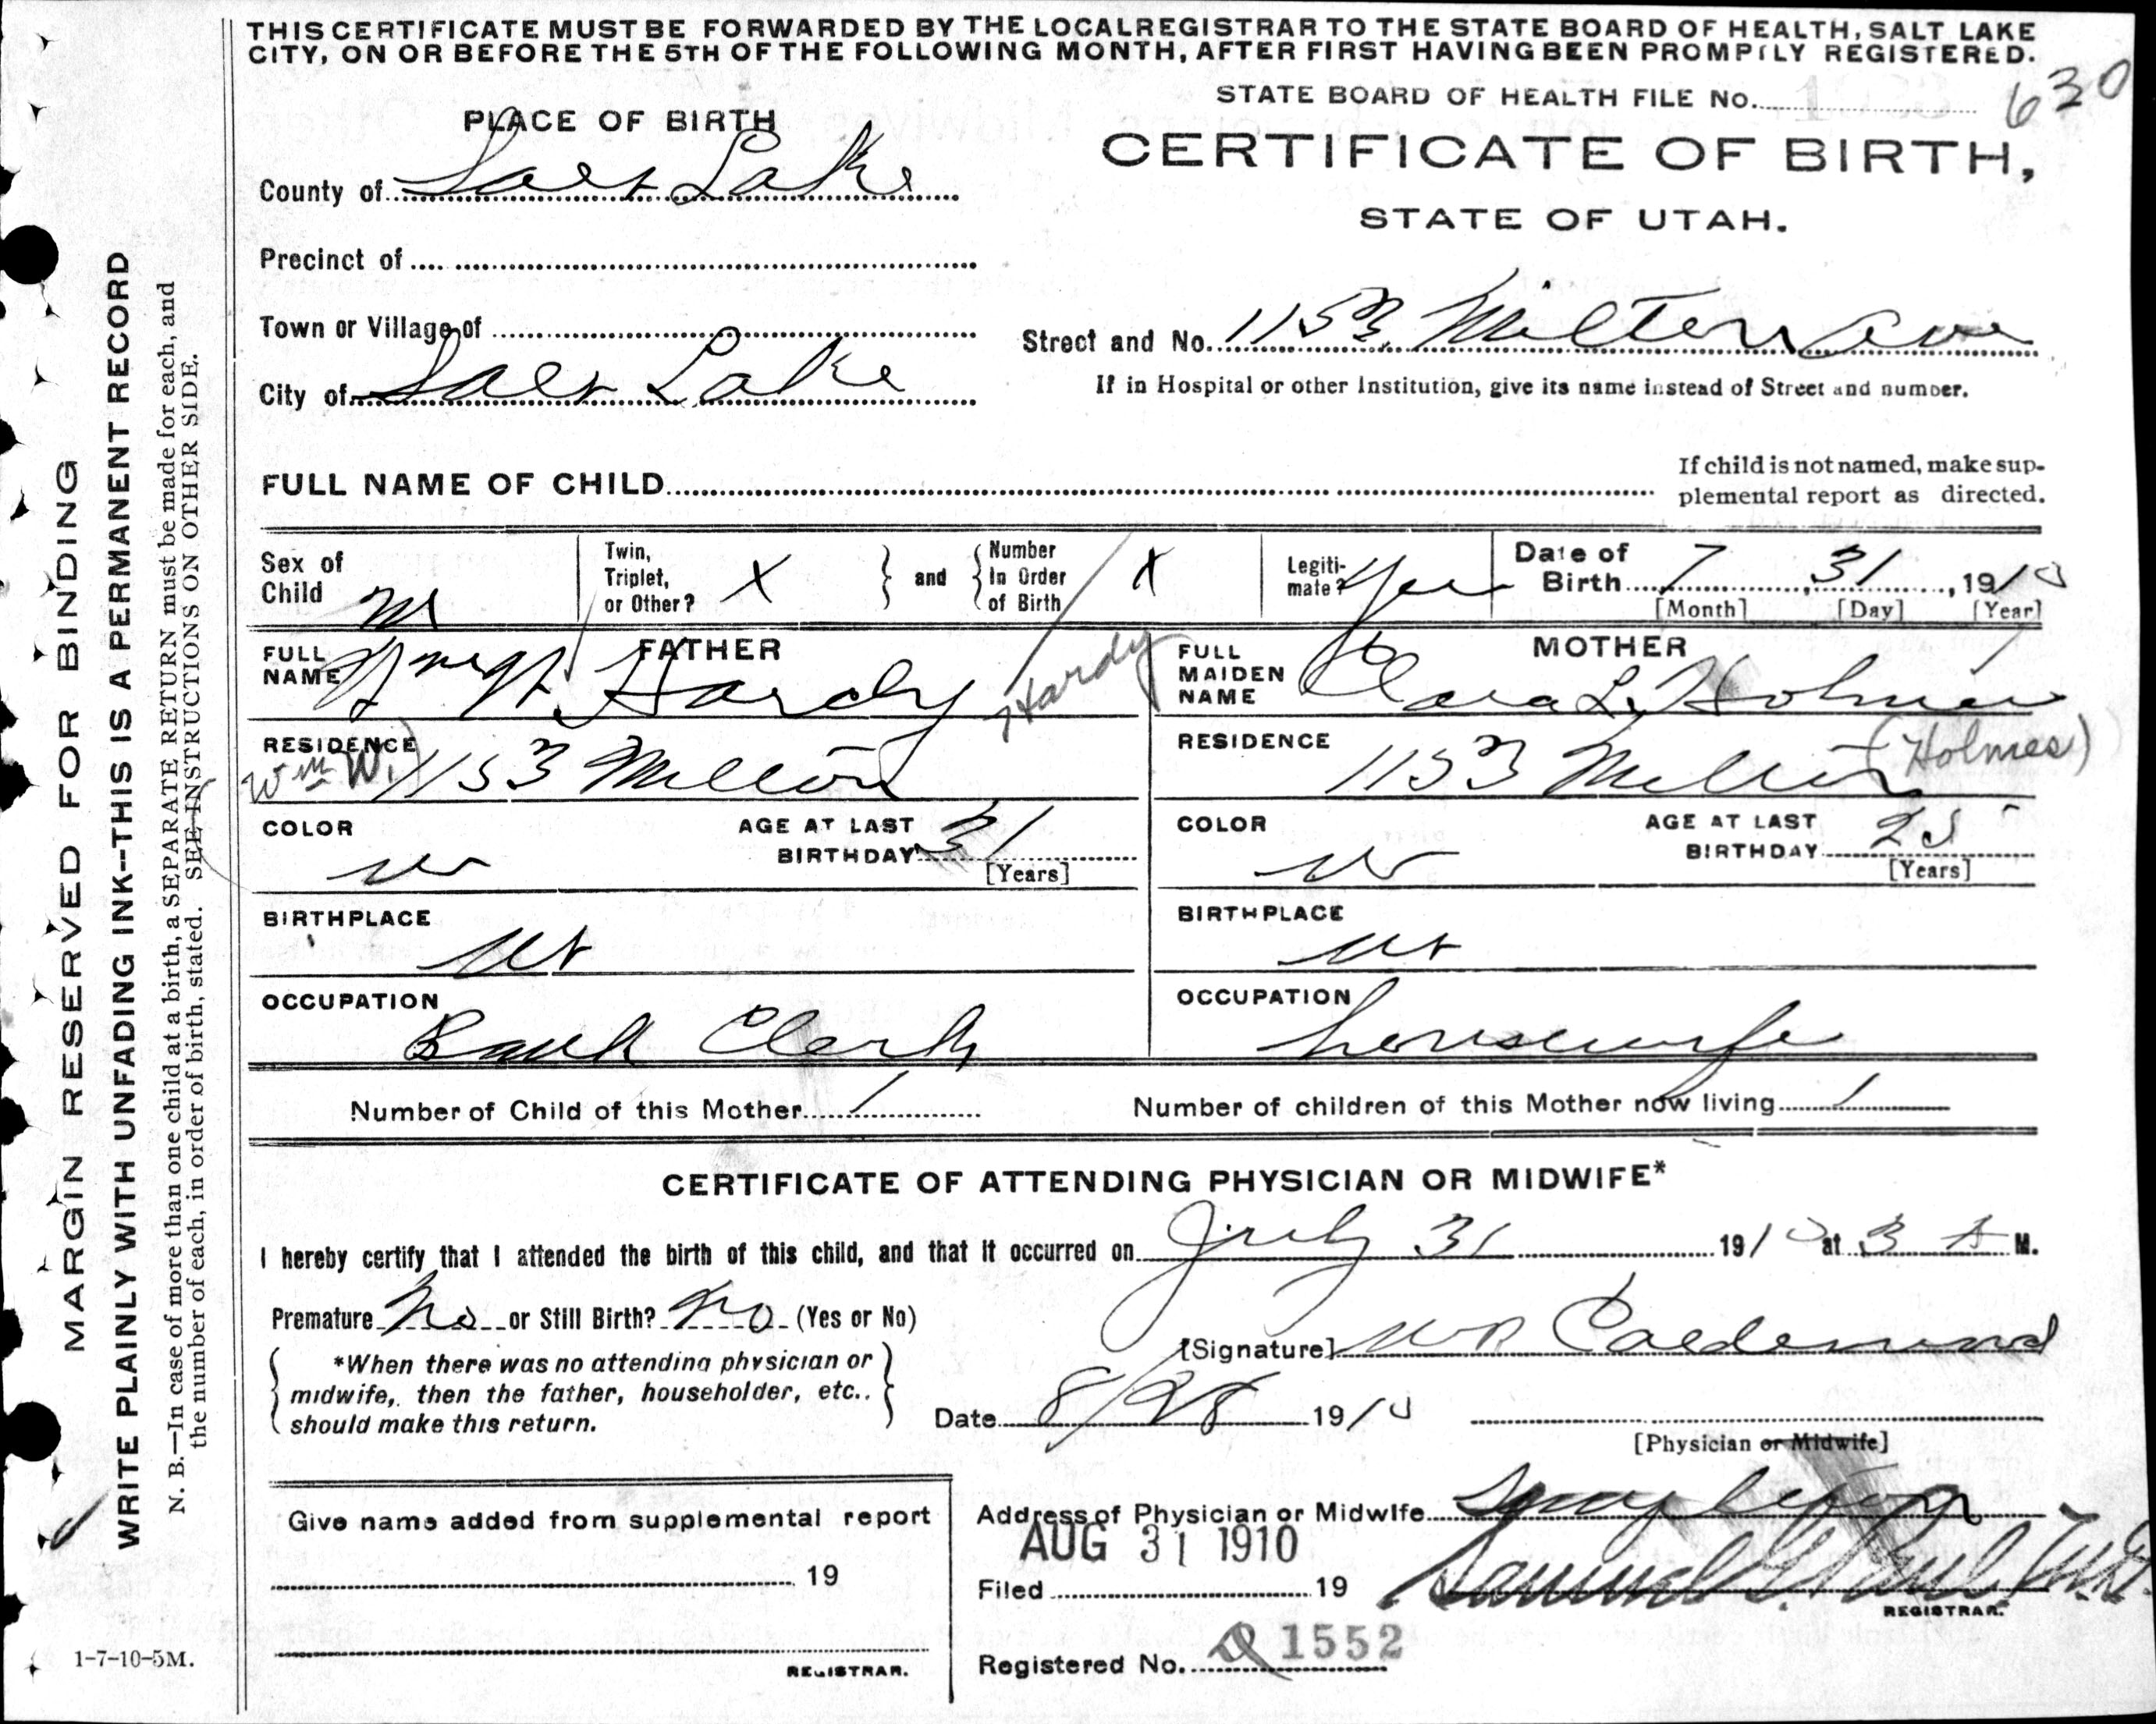 THIS CERTIFICATE MUST BE FORWARDED BY THE LOCAL REGISTRAR TO THE STATE BOARD OF HEALTH, SALT LAKE
CITY, ON OR BEFORE THE 5TH OF THE FOLLOWING MONTH, AFTER FIRST HAVING BEEN PROMPTLY REGISTERED.
STATE BOARD OF HEALTH FILE No. 630
PLACE OF BIRTH
CERTIFICATE OF BIRTH,
STATE OF UTAH.
County of Salt Lake
Precinct of
Town or Village of
Street and No. 1153 Milton Ave
City of Salt Lake
If in Hospital or other Institution, give its name instead of Street and number.
FULL NAME OF CHILD
If child is not named, make sup-
plemental report as directed.
Sex of Child M
Twin, Triplet, or Other? X
and
Number In Order of Birth X
Legiti-mate? Yes
Date of Birth 7 31, 1910
[Month] [Day] [Year]
FATHER
FULL NAME Wm W. Hardy
Hardy
MOTHER
FULL MAIDEN NAME Clara L. Holmes
RESIDENCE 1153 Milton
Wm W.)
RESIDENCE 1153 Milton
(Holmes)
COLOR W
AGE AT LAST BIRTHDAY 31
[Years]
COLOR W
AGE AT LAST BIRTHDAY 25
[Years]
BIRTHPLACE Ut
BIRTHPLACE Ut
OCCUPATION Bank Clerk
OCCUPATION housewife
Number of Child of this Mother 1
Number of children of this Mother now living 1
CERTIFICATE OF ATTENDING PHYSICIAN OR MIDWIFE*
I hereby certify that I attended the birth of this child, and that it occurred on July 31 1910 at 3 A M.
Premature No or Still Birth? No (Yes or No)
[Signature]
*When there was no attending physician or
midwife, then the father, householder, etc.,
should make this return.
Date 8/28 1910
[Physician or Midwife]
Give name added from supplemental report
19
REGISTRAR.
Address of Physician or Midwife
AUG 31 1910
Filed 19
Samuel G. Paul, M.D.
REGISTRAR.
Registered No. 1552
MARGIN RESERVED FOR BINDING
WRITE PLAINLY WITH UNFADING INK--THIS IS A PERMANENT RECORD
N. B.—In case of more than one child at a birth, a SEPARATE RETURN must be made for each, and
the number of each, in order of birth, stated. SEE INSTRUCTIONS ON OTHER SIDE.
1-7-10-5M.